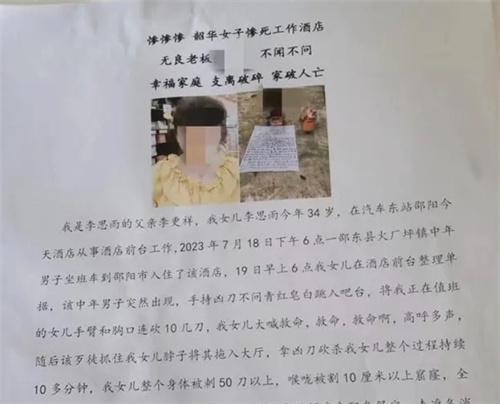 惨惨惨 韶华女子惨死工作酒店
无良老板 不闻不问
幸福家庭 支离破碎 家破人亡
我是李思雨的父亲李更祥，我女儿李思雨今年 34 岁，在汽车东站邵阳今
天酒店从事酒店前台工作，2023 年 7 月 18 日下午 6 点一邵东县火厂坪镇中年
男子坐班车到邵阳市入住了该酒店，19 日早上 6 点我女儿在酒店前台整理单
据，该中年男子突然出现，手持凶刀不问青红皂白跳入吧台，将我正在值班
的女儿手臂和胸口连砍 10 几刀，我女儿大喊救命，救命，救命啊，高呼多声，
随后该歹徒抓住我女儿脖子将其拖入大厅，拿凶刀砍杀我女儿整个过程持续
10 多分钟，我女儿整个身体被刺 50 刀以上，喉咙被割 10 厘米以上窟窿，全